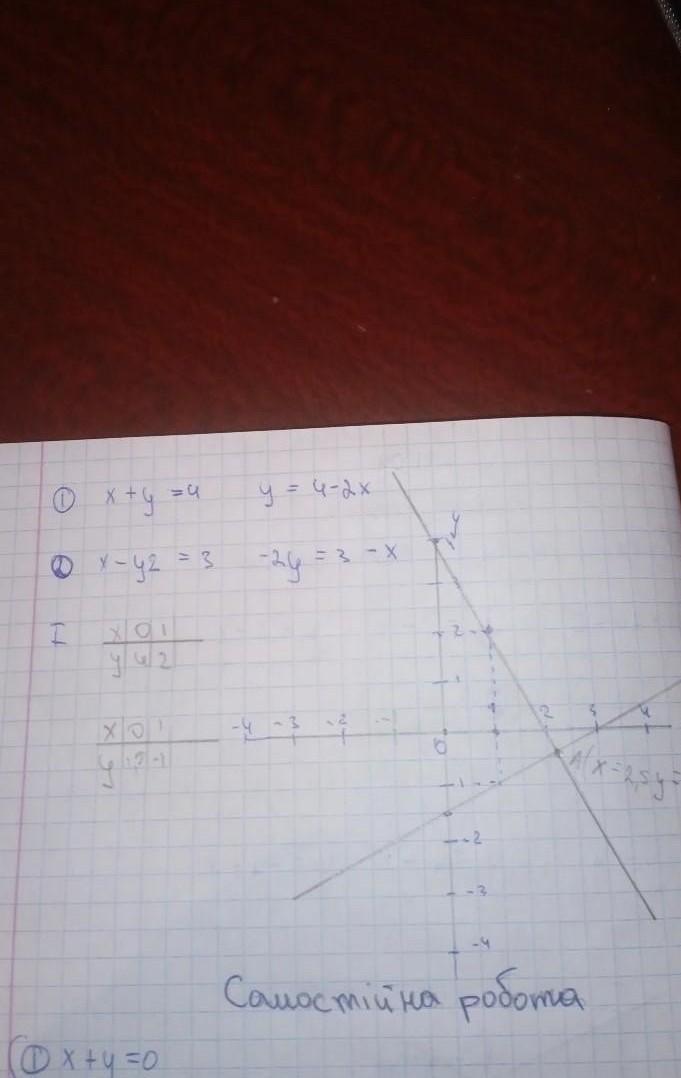 ① x + y = 4 y = 4 - 2x
② x - y2 = 3 -2y = 3 - x
I x 0 1
y 4 2
x 0 1
y -1
y
2
1
-4 -3 -2 -1 0 2 3 4
A(x = 2,5 y =
-1
-2
-3
-4
Самостійна робота
① x + y = 0